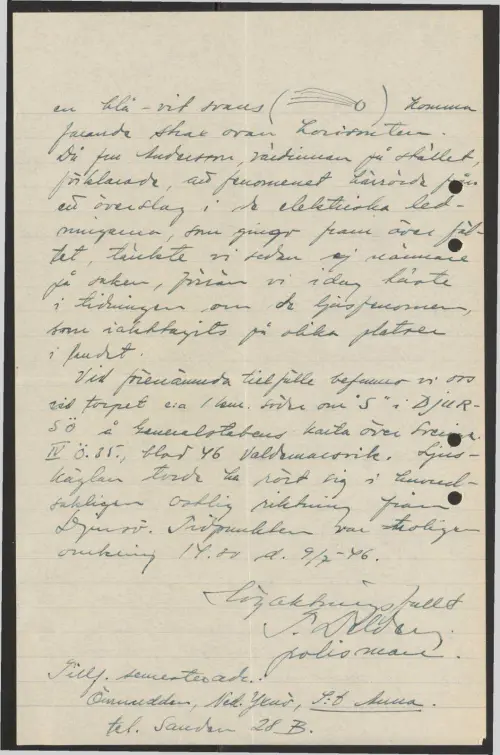 en blå-vit svans ( ) komma
farande strax ovan horisonten.
Då fru Andersson, värdinnan på stället,
förklarade, att fenomenet härrörde från
ett överslag i de elektriska led-
ningarna, som gingo fram över fäl-
tet, tänkte vi sedan ej närmare
på saken, förrän vi idag läste
i tidningen om de ljusfenomen,
som iakttagits på olika platser
i landet.
Vid förenämnda tillfälle befunno vi oss
vid torpet c:a 1 km. söder om "S" i DJUR-
SÖ å Generalstabens karta över Sverige
IV Ö. 35., blad 46 Valdemarsvik. Ljus-
käglan torde ha rört sig i huvud-
sakligen ostlig riktning från
Djursö. Tidpunkten var troligen
omkring 14.00 d. 9/7-46.
Högaktningsfullt
polisman.
Tillf. semesteradr.:
Ned. Yxnö, S:t Anna.
tel. Sanden 28 B.